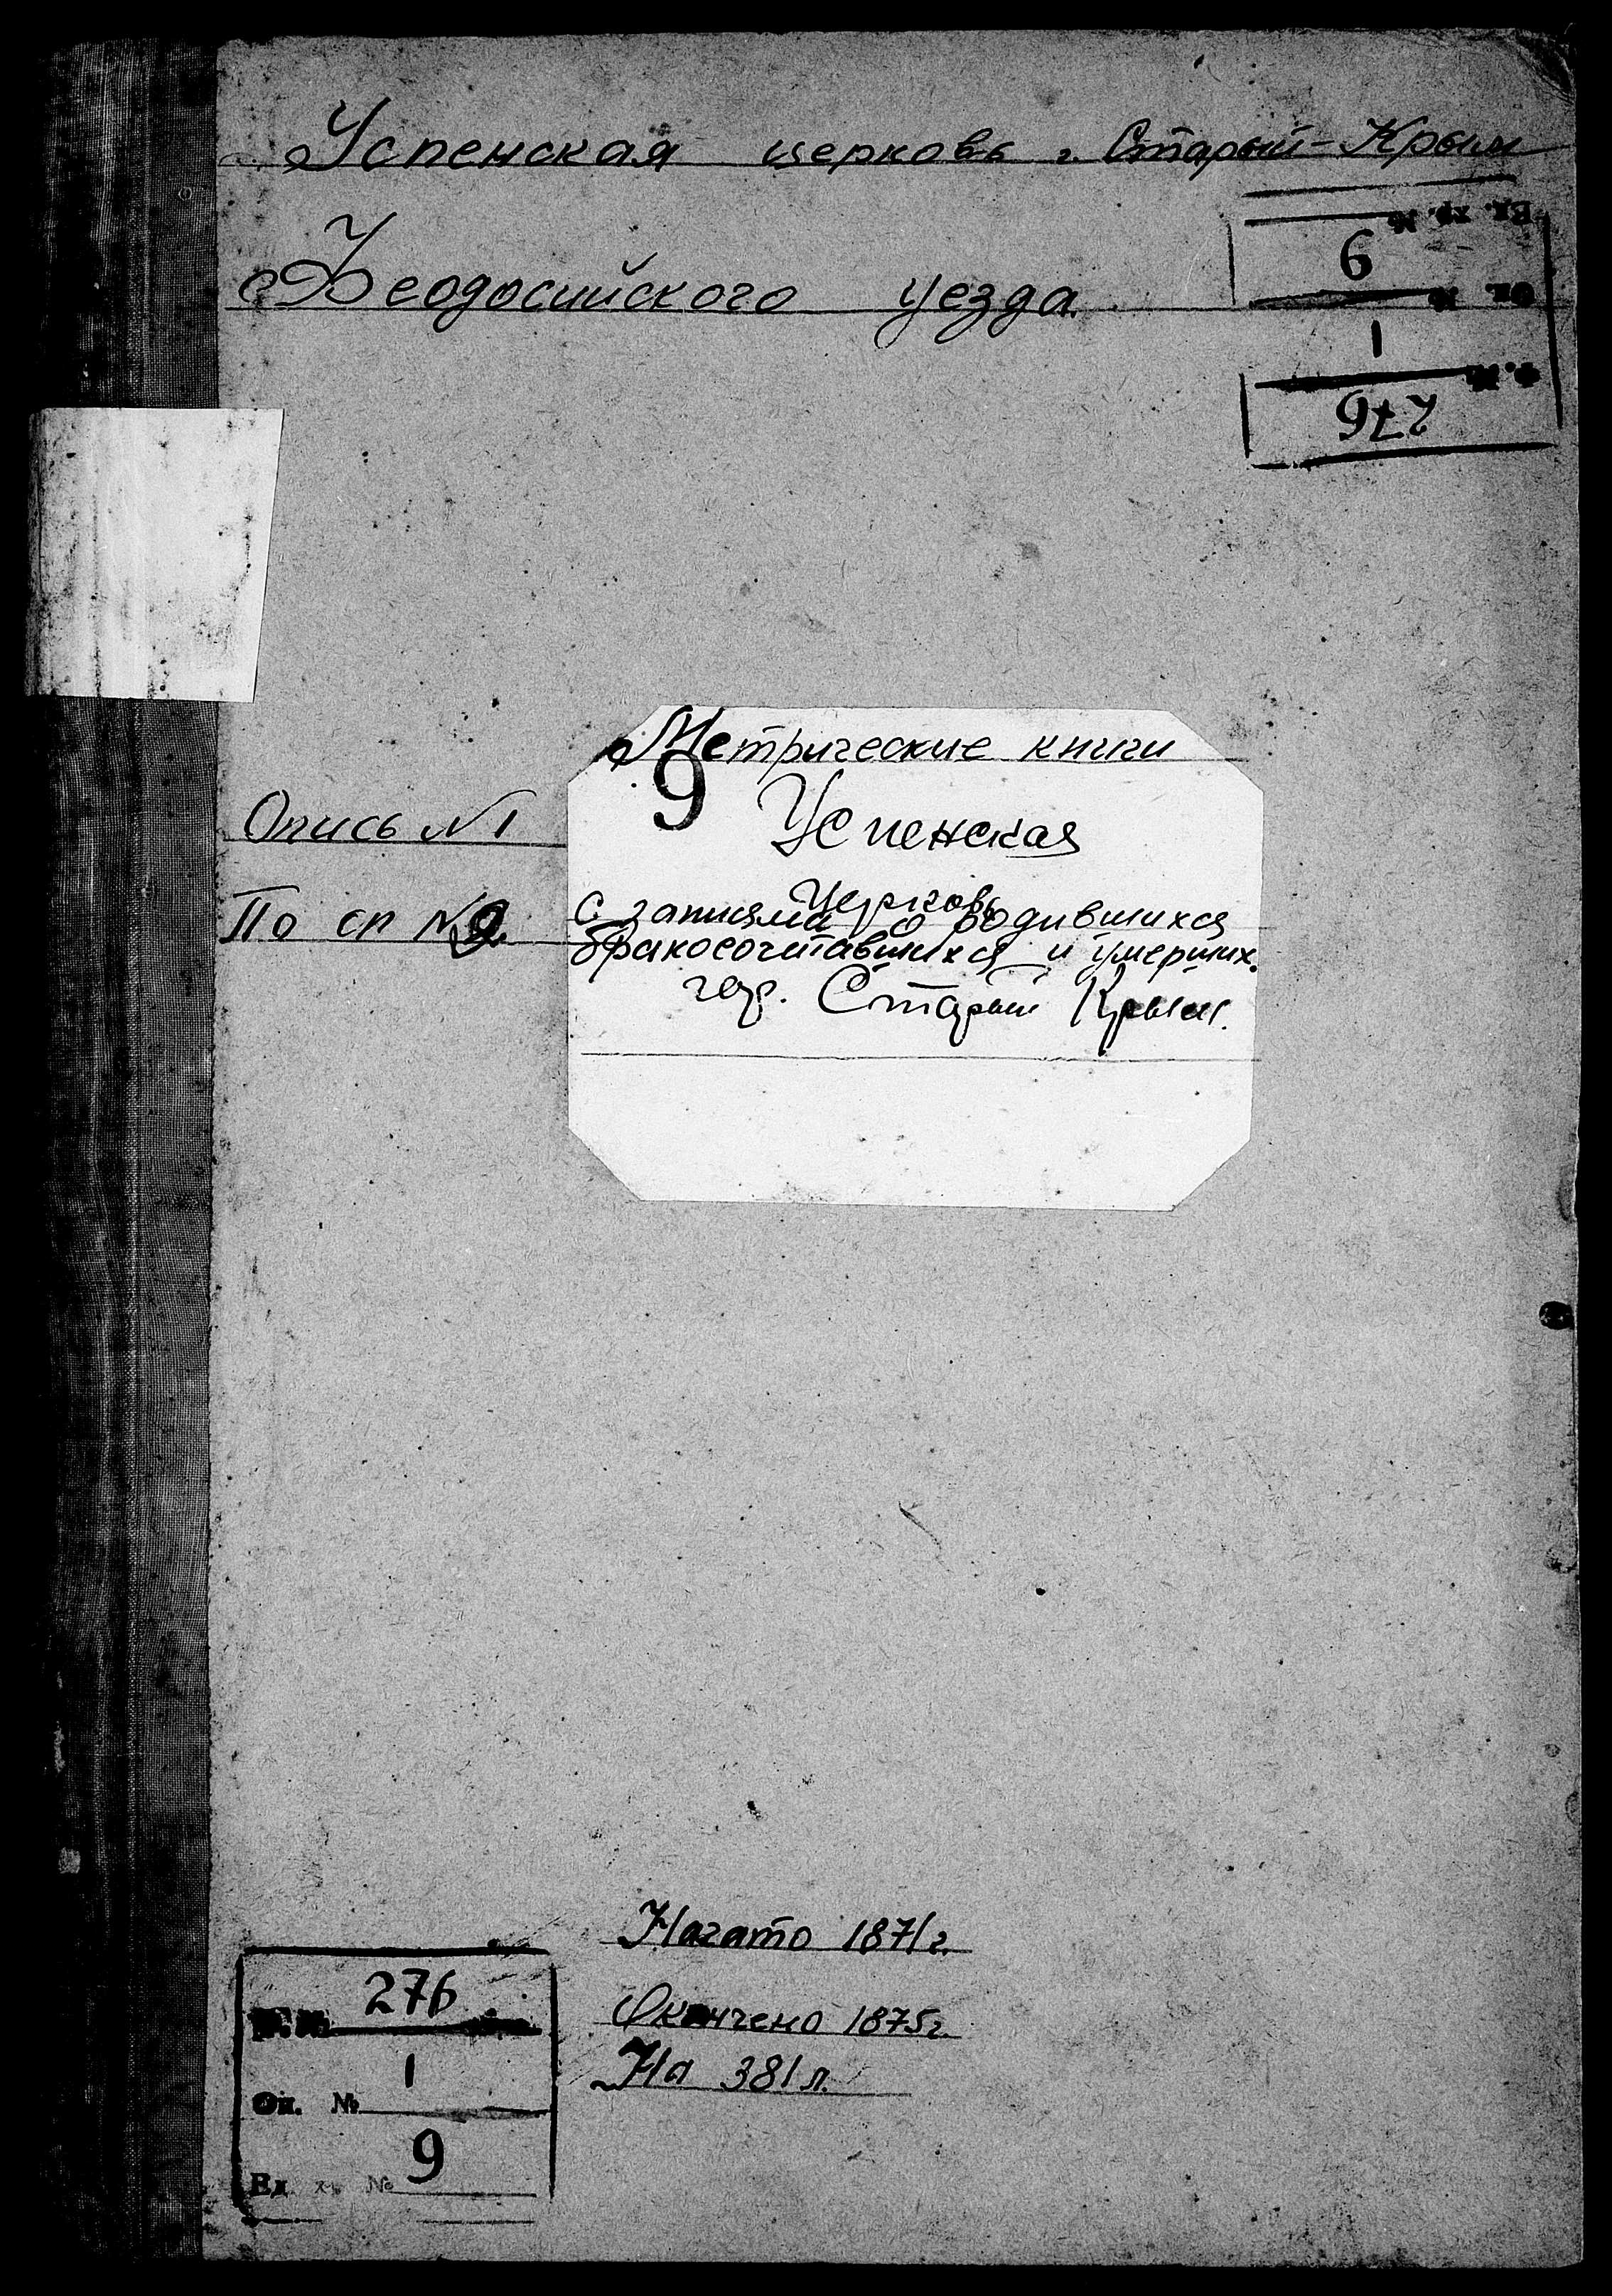 Успенская церковь г. Старый-Крым
Феодосийского уезда.
Ед. хр. №
9
Оп. №
1
Ф. №
276
Метрические книги
9 Успенская
Опись №1
церковь
По сп №9
с записями о родившихся
бракосочетавшихся и умерших.
гор. Старый Крым.
Начато 1871 г.
Окончено 1875 г.
На 381 л.
Ф. № 276
Оп. № 1
Ед. хр. № 9